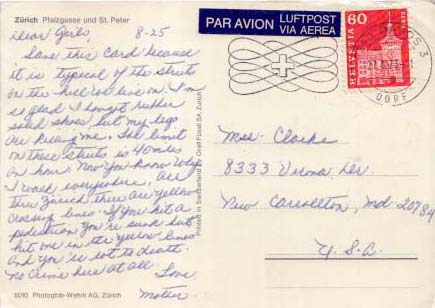 Zürich Pfalzgasse und St. Peter
Dear Girls, 8-25
Save this card because
it is typical of the streets
on the hill we live on. I'm
so glad I bought rubber
soled shoes but my legs
are killing me. The limit
on these streets is 40 miles
an hour. Now you know why
I walk everywhere. All
thru Zurich there are yellow
crossing lines. If you hit a
pedestrian you're sunk but
hit one in the yellow lines
and you're put to death.
No crime here at all. Love
Mother
6010 Photoglob-Wehrli AG, Zürich
Printed in Switzerland by Orell Füssli SA, Zürich
PAR AVION LUFTPOST
VIA AEREA
60
HELVETIA
DORF
Clarke
8333 Verona Dr.
New Carrollton, Md. 20784
U.S.A.